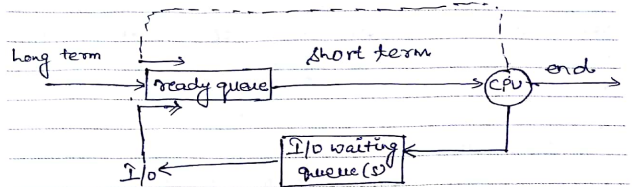 Long term
short term
ready queue
CPU
end
I/O waiting
queue(s)
I/O